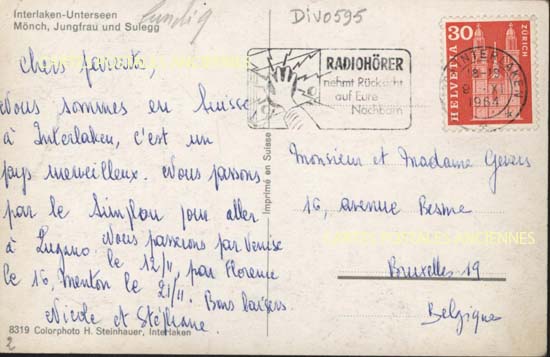 Interlaken-Unterseen
Mönch, Jungfrau und Sulegg
lundig
DIV0595
Chers parents,
Nous sommes en Suisse
à Interlaken, c'est un
pays merveilleux. Nous passons
par le Simplon pour aller
à Lugano. Nous passerons par Venise
le 12/11, par Florence
le 16, Menton le 21/11. Bons baisers
Nicole et Stéphane.
8319 Colorphoto H. Steinhauer, Interlaken
2
Imprimé en Suisse
RADIOHÖRER
nehmt Rücksicht
auf Eure
Nachbarn
30
HELVETIA
ZÜRICH
INTERLAKEN
1964
Monsieur et Madame Gevers
16, avenue Besme
CARTES POSTALES ANCIENNES
Bruxelles 19
Belgique